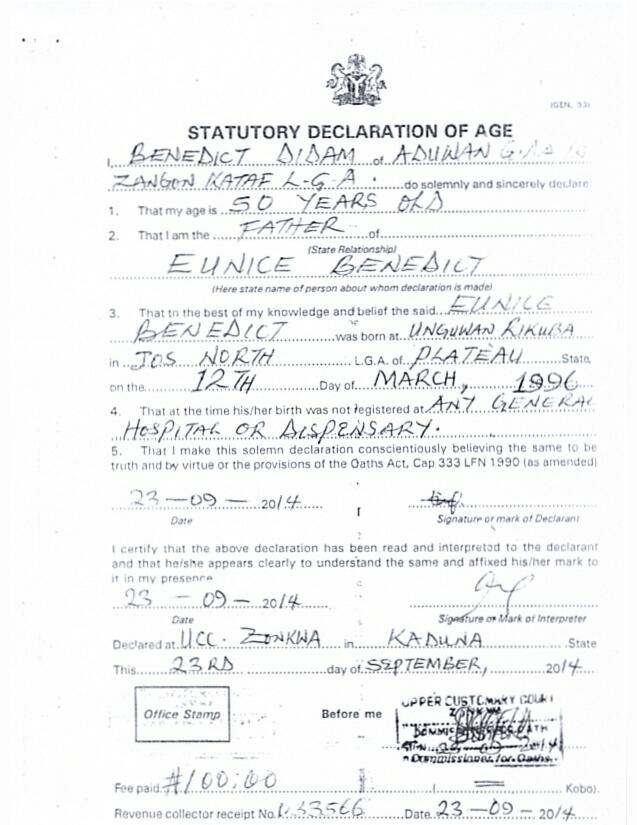 (GEN. 53)
STATUTORY DECLARATION OF AGE
I, BENEDICT DIDAM of ADUWAN
ZANGON KATAF L-G-A. do solemnly and sincerely declare
1. That my age is 50 YEARS OLD
2. That I am the FATHER of
(State Relationship)
EUNICE BENEDICT
(Here state name of person about whom declaration is made)
3. That to the best of my knowledge and belief the said EUNICE
BENEDICT was born at UNGUWAN RIKUBA
in JOS NORTH L.G.A. of PLATEAU State
on the 12TH Day of MARCH, 1996
4. That at the time his/her birth was not registered at ANY GENERAL
HOSPITAL OR DISPENSARY.
5. That I make this solemn declaration conscientiously believing the same to be
truth and by virtue or the provisions of the Oaths Act, Cap 333 LFN 1990 (as amended)
23-09-2014
Date Signature or mark of Declarant
I certify that the above declaration has been read and interpreted to the declarant
and that he/she appears clearly to understand the same and affixed his/her mark to
it in my presence
23-09-2014
Date Signature or Mark of Interpreter
Declared at UCC. ZONKWA in KADUNA State
This 23RD day of SEPTEMBER, 2014
Office Stamp Before me
UPPER CUSTOMARY COURT
ZONKWA
Commissioner for Oaths
Fee paid #100:00 ( = Kobo).
Revenue collector receipt No. 033566 Date 23-09-2014